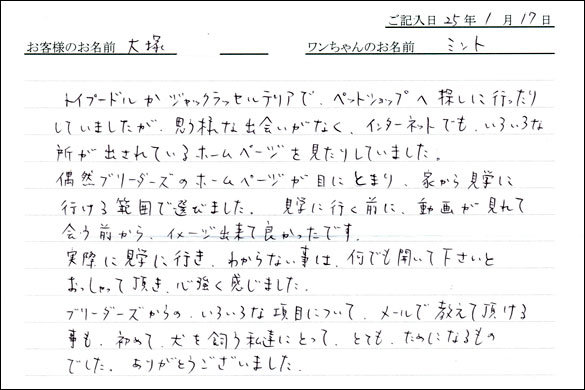 ご記入日 25年 1月 17日
お客様のお名前 大塚 ワンちゃんのお名前 ミント
トイプードルかジャックラッセルテリアで、ペットショップへ探しに行ったり
していましたが、思う様な出会いがなく、インターネットでも、いろいろな
所が出されているホームページを見たりしていました。
偶然ブリーダーズのホームページが目にとまり、家から見学に
行ける範囲で選びました。 見学に行く前に、動画が見れて
会う前から、イメージ出来て良かったです。
実際に見学に行き、わからない事は、何でも聞いて下さいと
おっしゃって頂き、心強く感じました。
ブリーダーズからの、いろいろな項目について、メールで教えて頂ける
事も、初めて、犬を飼う私達にとって、とても、ためになるもの
でした。ありがとうございました。